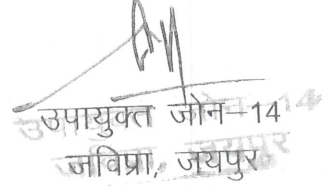 उपायुक्त जोन-14
जविप्रा, जयपुर